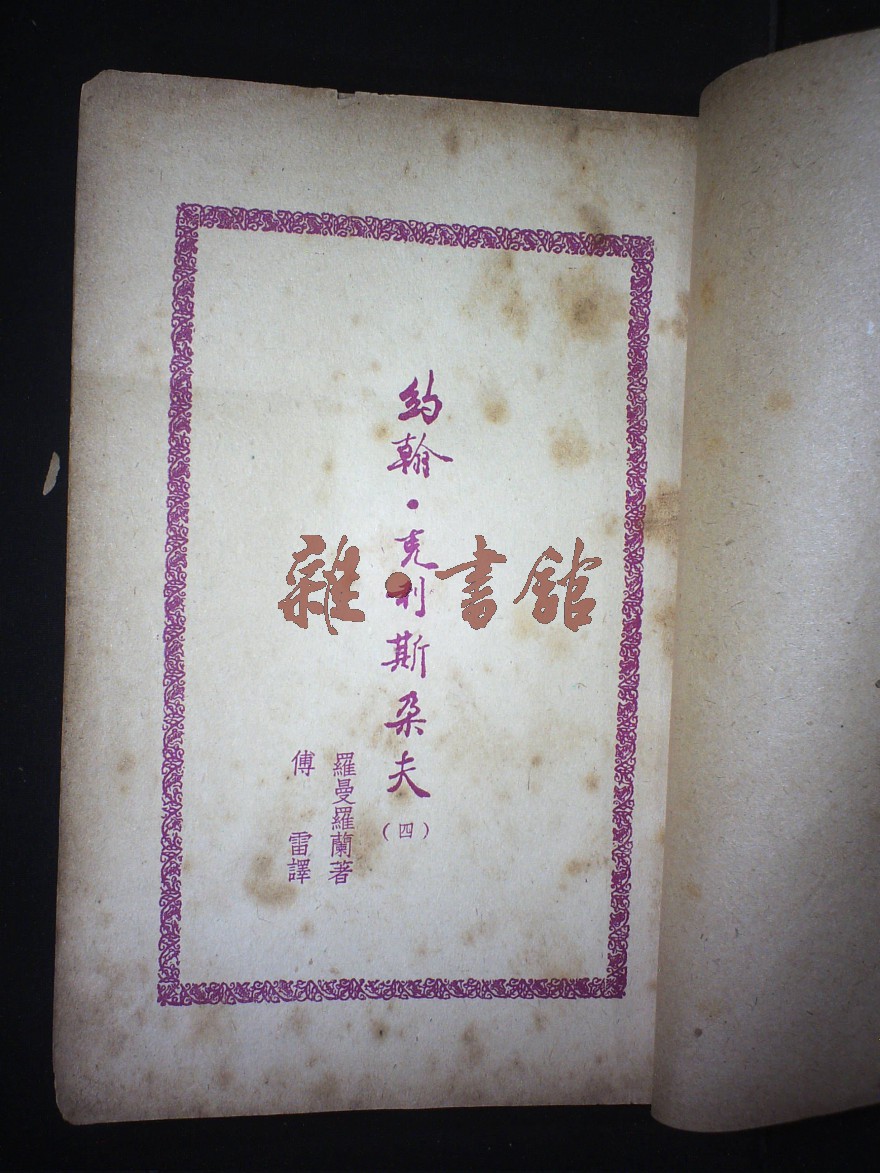 約翰·克利斯朵夫
(四)
羅曼羅蘭著
傅 雷譯
雜·書館